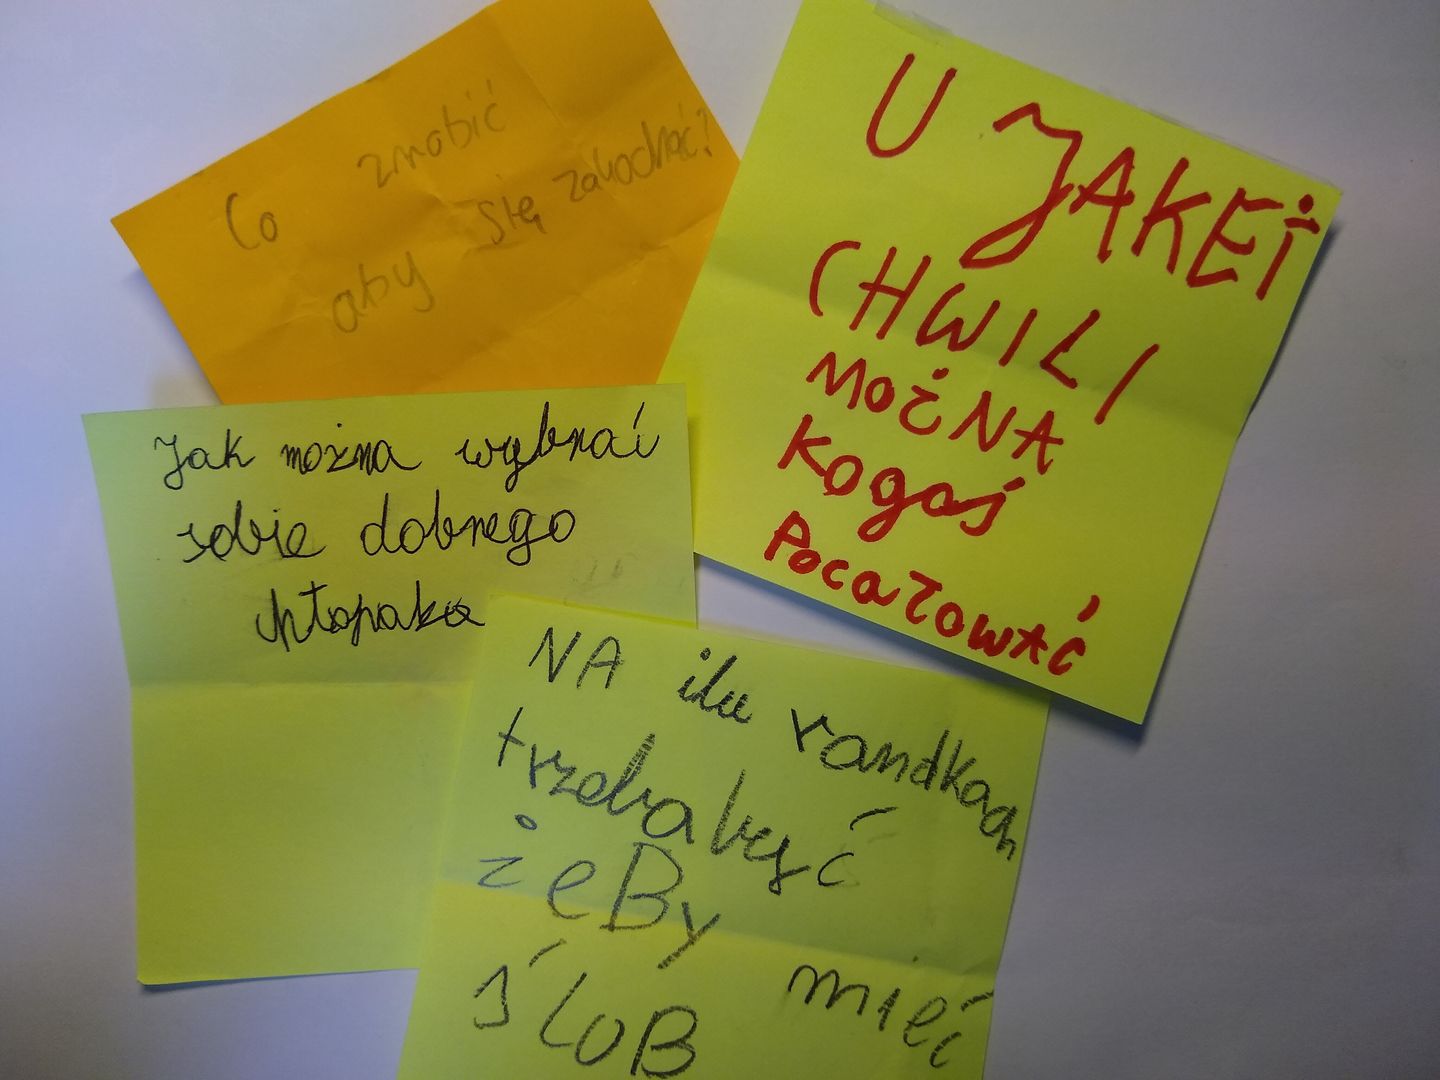 Co zrobić
aby się zakochać?
U JAKEİ
CHWILI
MOŻNA
Kogoś
PocałowAć
Jak można wybrać
sobie dobrego
chłopaka
NA ilu randkach
trzeba być
żeBy mieć
ślUB